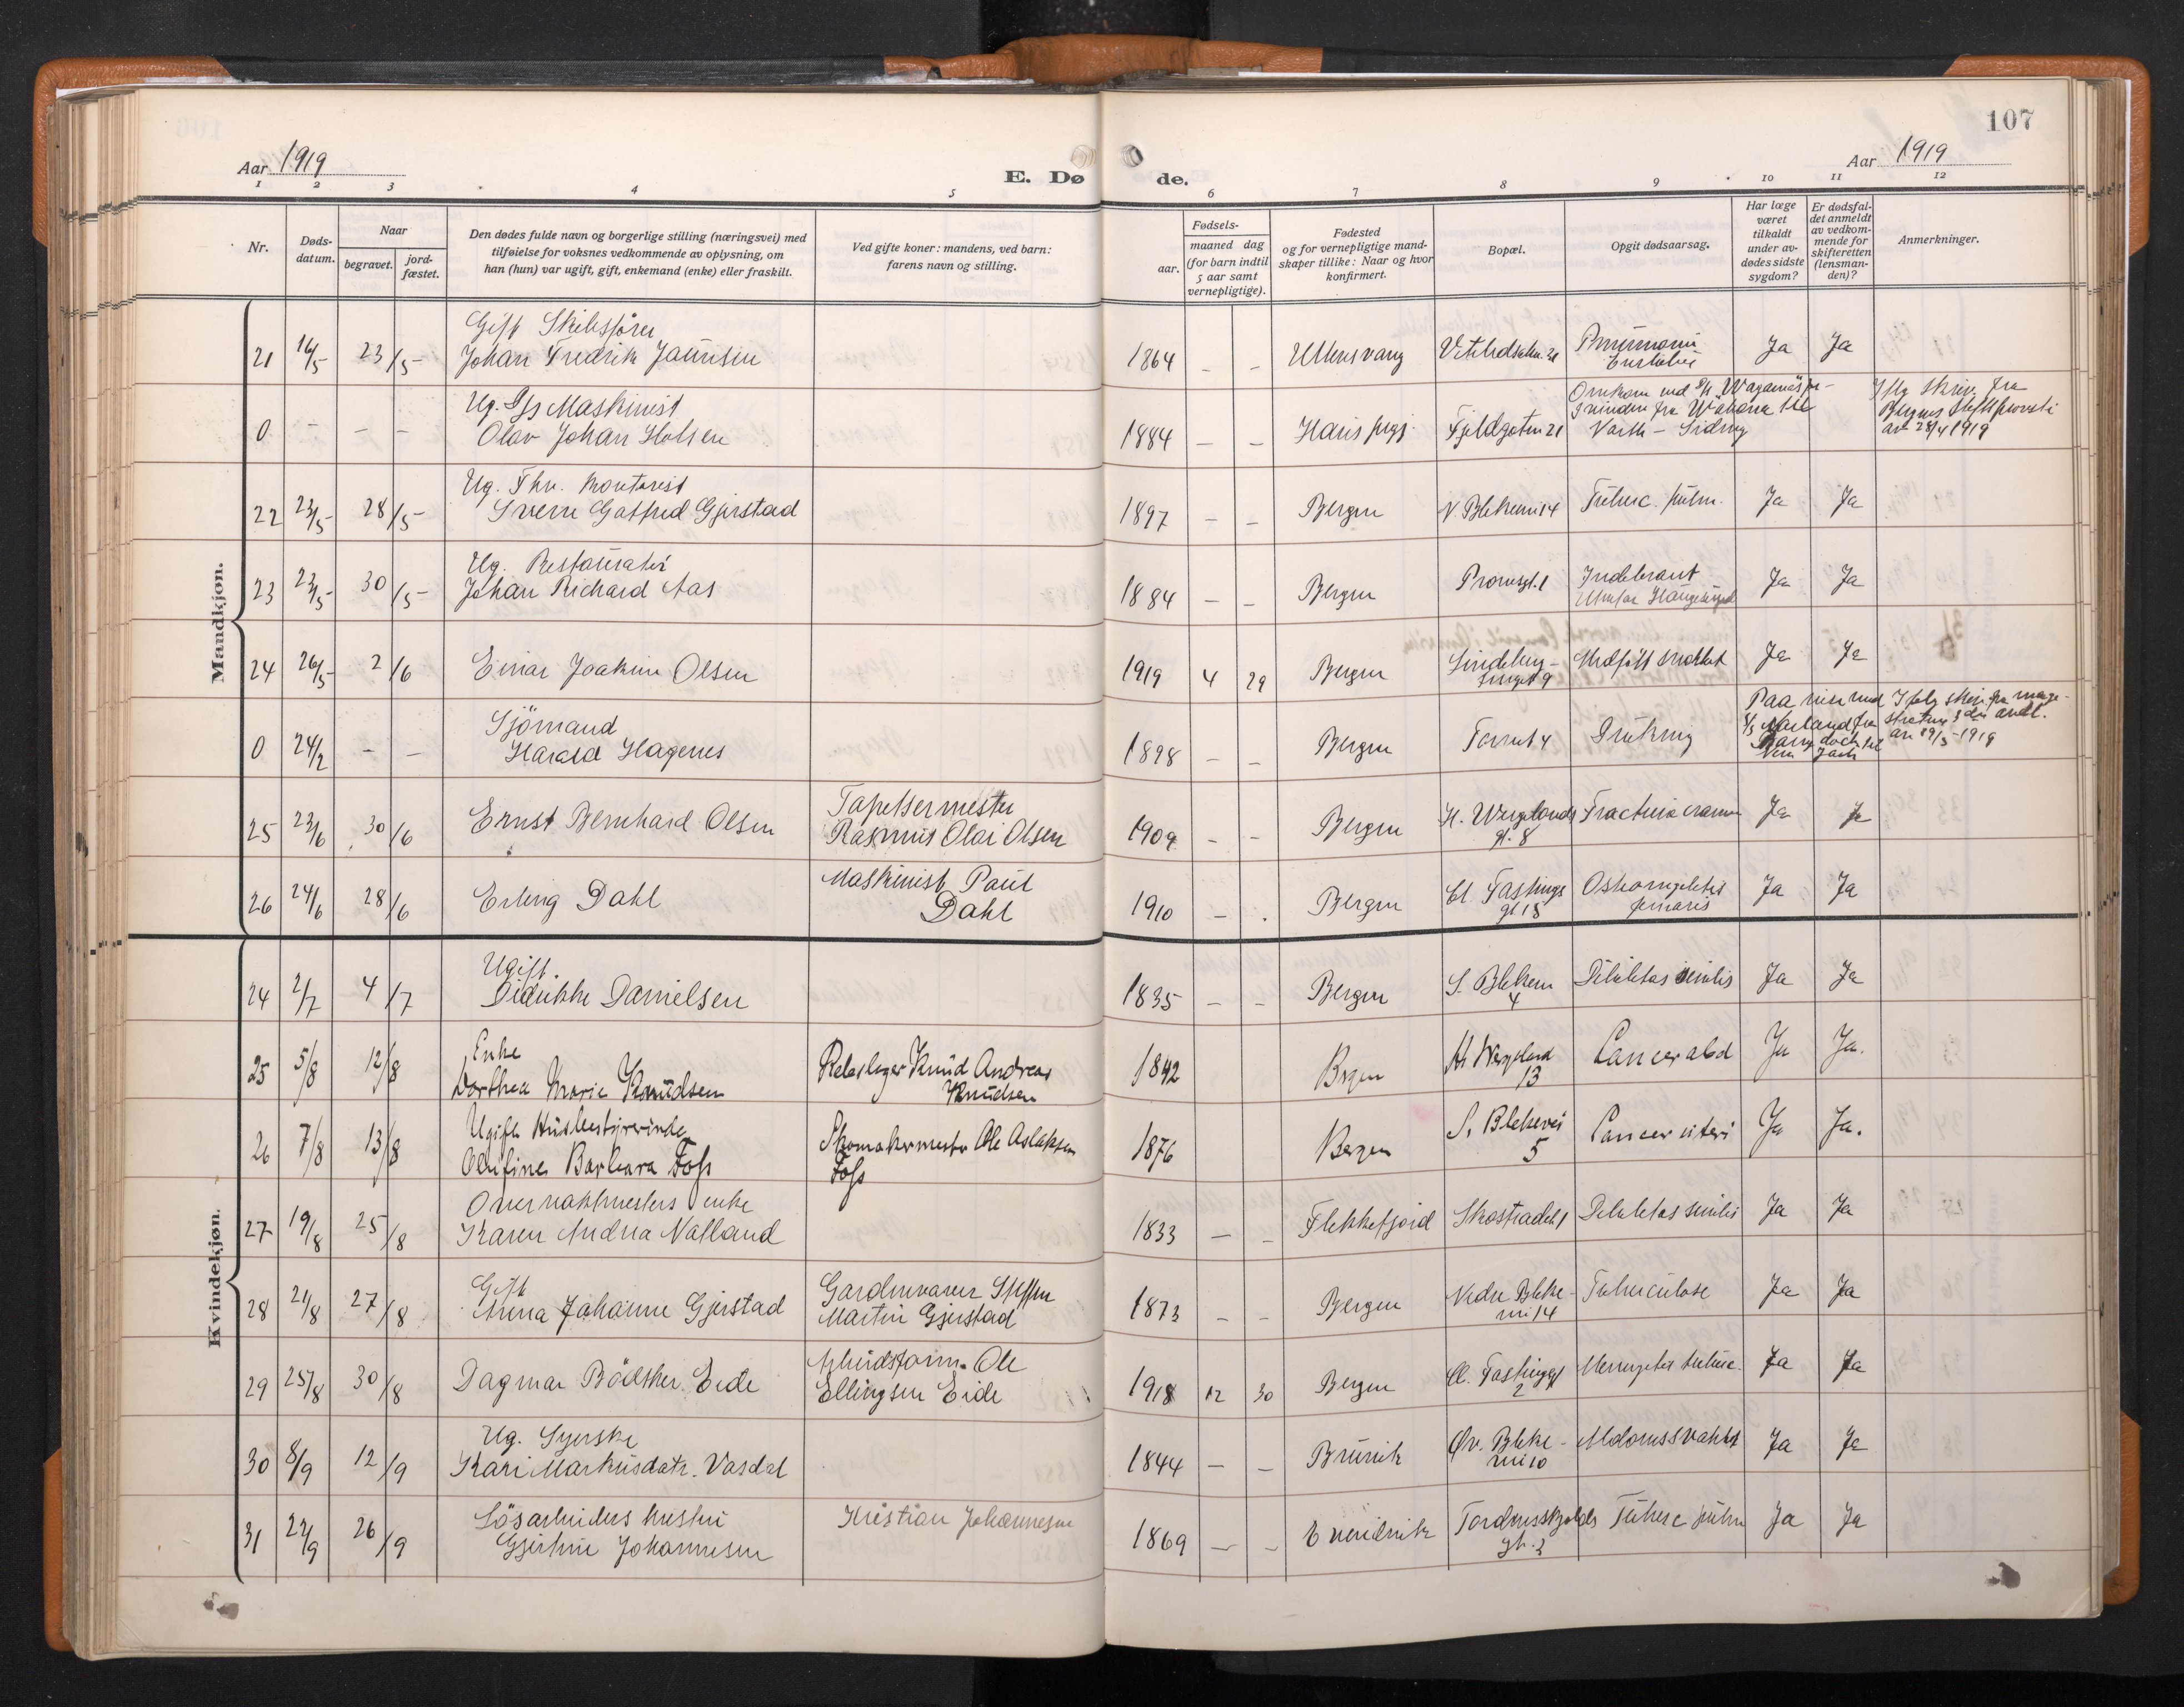 107
Aar 1919
E. Dø
de.
Aar 1919
1 2 3 4 5 6 7 8 9 10 11 12
Nr.
Døds-
datum.
Naar
begravet.
jord-
fæstet.
Den dødes fulde navn og borgerlige stilling (næringsvei) med
tilføielse for voksnes vedkommende av oplysning, om
han (hun) var ugift, gift, enkemand (enke) eller fraskilt.
Ved gifte koner: mandens, ved barn:
farens navn og stilling.
Fødsels-
aar.
maaned dag
(for barn indtil
5 aar samt
vernepligtige).
Fødested
og for vernepligtige mand-
skaper tillike: Naar og hvor
konfirmert.
Bopæl.
Opgit dødsaarsag.
Har læge
været
tilkaldt
under av-
dødes sidste
sygdom?
Er dødsfal-
det anmeldt
av vedkom-
mende for
skifteretten
(lensman-
den)?
Anmerkninger.
Mandkjøn.
Gift Skibsfører
21 16/5 23/5 Johan Fredrik 1864 - - Ullensvang Ja Ja
Ug. Maskinist
0 - - - Olav Johan Holsen 1884 - - Fjeldgaten 21
av 28/4 1919
Ug.
22 23/5 28/5 Sverre Gotfred Gjerstad 1897 - - Bergen N. Blekevei 14 Tuberc. pulm. Ja Ja
Ug. Restauratør
23 23/5 30/5 Johan Richard Aas 1884 - - Bergen Ja Ja
24 26/5 2/6 Einar Joakim Olsen 1919 4 29 Bergen Lindeberg- Medfødt svakhet Ja Ja
Sjömand
0 24/2 - - Harald Hagenes 1898 - - Bergen Torvet 4 Drukning
Paa reise med
av 19/5-1919
Tapetsermester
25 23/6 30/6 Ernst Bernhard Olsen Rasmus Olai Olsen 1909 - - Bergen H. Wergelands Fractura cranii Ja Ja
gt. 8
Maskinist Paul
26 24/6 28/6 Erling Dahl Dahl 1910 - Bergen Cl. Fastings Ja Ja
gt 18 femoris
Kvindekjøn.
Ugift.
24 2/7 4/7 Didrikke Danielsen 1835 - - Bergen S. Blekev. Debilitas senilis Ja Ja
4
Enke
25 5/8 12/8 Dorthea Marie Knudsen Rebslager Knud Andreas 1842 Bergen H Wergeland Cancer abd Ja Ja.
Knudsen 13
Ugift Husbestyrerinde
26 7/8 13/8 Olufine Barbara Foss Skomakermester Ole Aslaksen 1876 Bergen S. Blekevei Cancer uteri Ja Ja.
Foss 5
Overvaktmesters enke
27 19/8 25/8 Karen Andrea Natland 1833 - - Flekkefjord Skostrædet 1 Debilitas senilis Ja Ja
Gift
28 21/8 27/8 Anna Johanne Gjerstad Gardinvasker Steffen 1873 - - Bergen Nedre Bleke- Tuberculose Ja Ja
Martin Gjerstad vei 14
29 25/8 30/8 Dagmar Bödtker Eide Arbeidsform. Ole 1918 12 30 Bergen Cl. Fastingsgt Meningitis tuberc. Ja Ja
Ellingsen Eide 2
Ug. Syerske
30 8/9 12/9 Kari Markusdatr. Vasdal 1844 - - Bruvik Øv. Bleke- Alderdomssvakhet Ja Ja
vei 10
Lösarbeiders hustru
31 22/9 26/9 Gjertine Johannesen Kristian Johannesen 1869 - - Evenvik Tordenskjolds Tuberc pulm Ja Ja
gt. 3